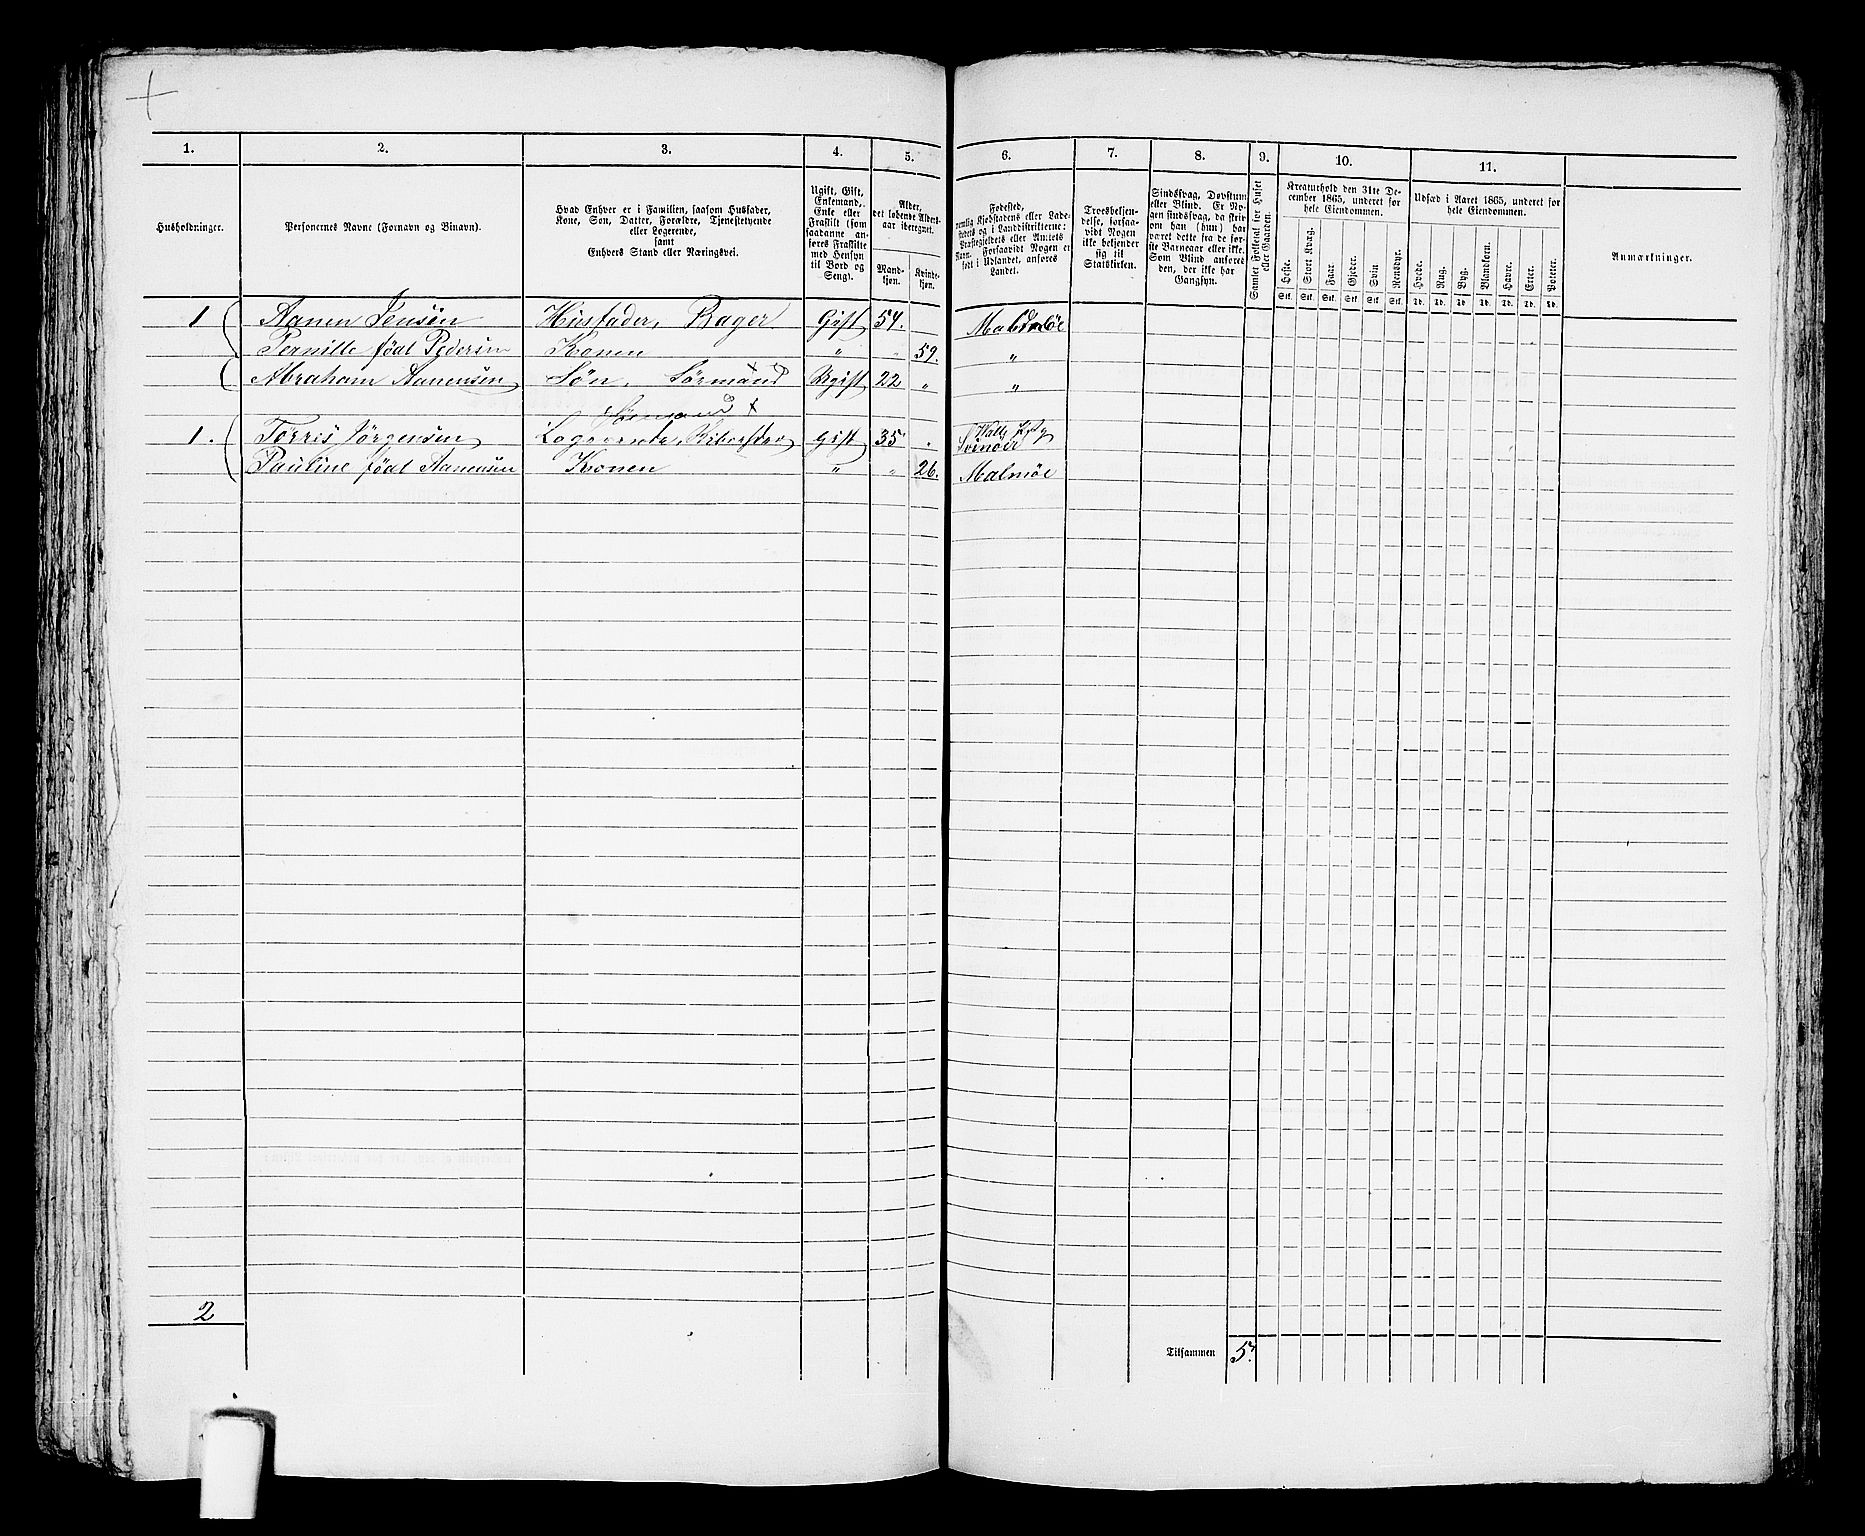 1. 2. 3. 4. 5. 6. 7. 8. 9. 10. 11.
Husholdninger.
Personernes Navne (Fornavn og Binavn).
Hvad Enhver er i Familien, saasom Husfader,
Kone, Søn, Datter, Forældre, Tjenestetyende
eller Logerende,
samt
Enhvers Stand eller Næringsvei.
Ugift, Gift,
Enkemand,
Enke eller
Fraskilt (som
saadanne an-
føres Fraskilte
med Hensyn
til Bord og
Seng).
Alder,
det løbende Alders-
aar iberegnet.
Mand-
kjøn.
Kvinde-
kjøn.
Fødested,
nemlig Kjøbstadens eller Lade-
stedets og i Landdistrikterne:
Præstegjeldets eller Amtets
Navn. Forsaavidt Nogen er
født i Udlandet, anføres
Landet.
Troesbekjen-
delse, forsaa-
vidt Nogen
ikke bekjender
sig til
Statskirken.
Sindssvag, Døvstum
eller Blind. Er No-
gen sindssvag, da skri-
ves om han (hun) har
været dette fra de før-
ste Barneaar eller ikke.
Som Blind anføres
den, der ikke har
Gangsyn.
Samlet Folketal for Huset
eller Gaarden.
Kreaturhold den 31te De-
cember 1865, underet for
hele Eiendommen.
Heste. Stort Kvæg. Faar Gjeder. Svin Rensdyr.
Stk. Stk. Stk. Stk. Stk. Stk.
Udsæd i Aaret 1865, underet for
hele Eiendommen.
Hvede. Rug. Byg. Blandkorn. Havre. Erter. Poteter.
Td. Td. Td. Td. Td. Td. Td.
Anmærkninger.
1 Aanen Jensen Husfader, Bager Gift 54. Malmøe
Pernille født Pedersen Konen " " 59. "
Abraham Aanensen Søn, Sørmand Ugift 22 " "
Sømand
1. Tørris Jørgensen Logerende, Gift 35 " Svinøer
Pauline født Aanensen Konen " " 26. Malmøe
2
Tilsammen 5.